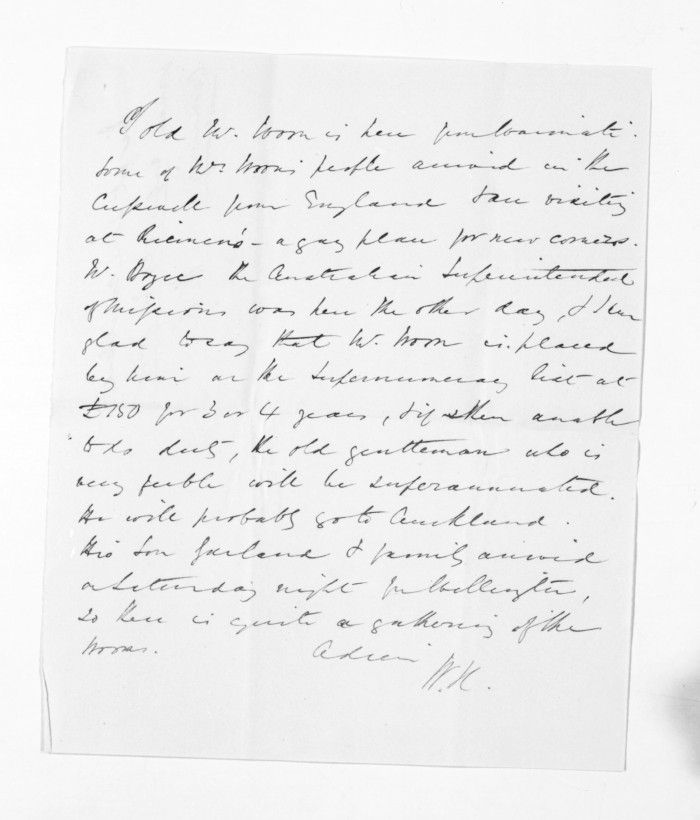 Told Mr. Woon is here from Waimate.
Some of Mrs Woon's people arrived in the
from England & are visiting
at Riemen's - a gay place for new comers.
W. Boyce the Australian Superintendent
of Missions was here the other day, & I am
glad to say that Mr. Woon is placed
by him on the Supernumerary list at
£150 for 3 or 4 years, & if then unable
to do duty, the old gentleman who is
very feeble will be superannuated.
He will probably go to Auckland.
His son Garland & family arrived
on Saturday night for Wellington,
so there is quite a gathering of the
Woons. Adieu
W.H.